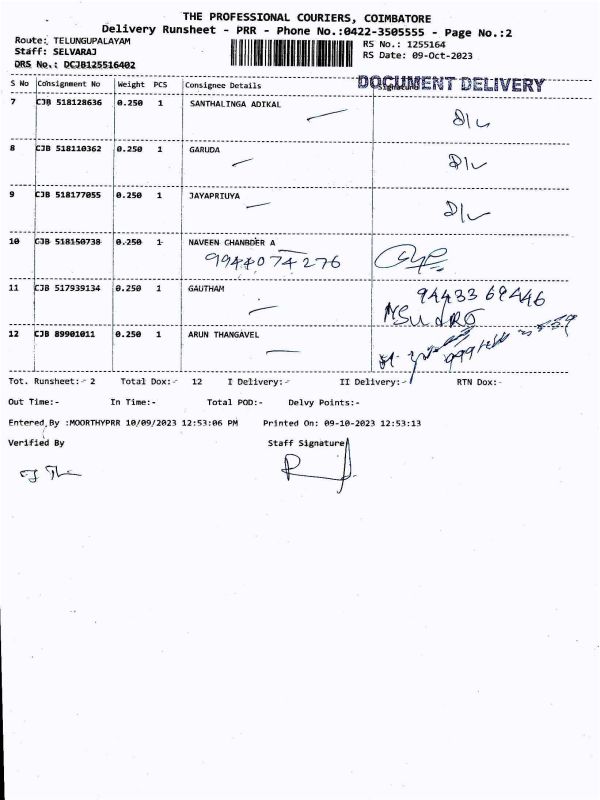 THE PROFESSIONAL COURIERS, COIMBATORE
Delivery Runsheet - PRR - Phone No.:0422-3505555 - Page No.:2
Route: TELUNGUPALAYAM
Staff: SELVARAJ
DRS No.: DCJB125516402
RS No.: 1255164
RS Date: 09-Oct-2023
DOCUMENT DELIVERY
S No Consignment No Weight PCS Consignee Details Signature
7 CJB 518128636 0.250 1 SANTHALINGA ADIKAL
D/L
8 CJB 518110362 0.250 1 GARUDA
D/L
9 CJB 518177055 0.250 1 JAYAPRIUYA
D/L
10 CJB 518150738 0.250 1 NAVEEN CHANBDER A
9944074276
11 CJB 517939134 0.250 1 GAUTHAM
9443369446
12 CJB 89901011 0.250 1 ARUN THANGAVEL
Tot. Runsheet:- 2 Total Dox:- 12 I Delivery:- II Delivery:- RTN Dox:-
Out Time:- In Time:- Total POD:- Delvy Points:-
Entered By :MOORTHYPRR 10/09/2023 12:53:06 PM Printed On: 09-10-2023 12:53:13
Verified By Staff Signature